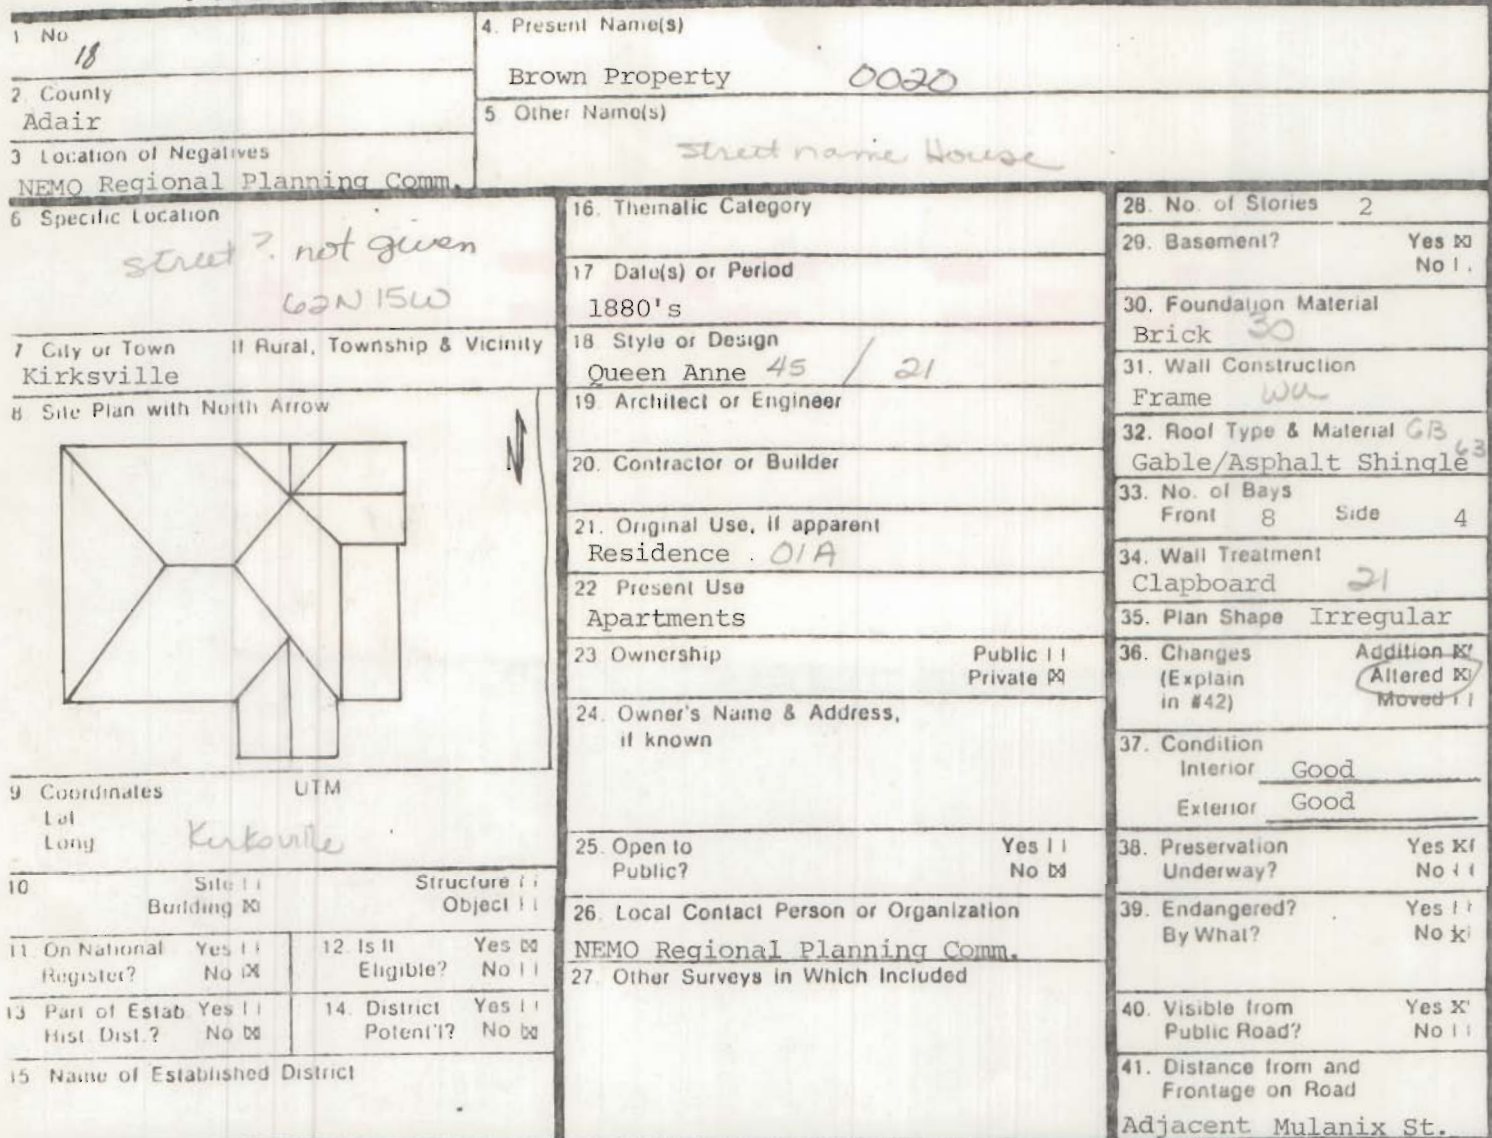 1 No
18
2. County
Adair
3 Location of Negatives
NEMO Regional Planning Comm.
4. Present Name(s)
Brown Property 0020
5 Other Name(s)
street name House
6 Specific Location
street? not given
62N 15W
7 City or Town If Rural, Township & Vicinity
Kirksville
8 Site Plan with North Arrow
N
9 Coordinates UTM
Lat
Long
Kirksville
10 Site Structure
Building X Object
11 On National Register? Yes
No X
12. Is It Eligible? Yes X
No
13 Part of Estab Hist. Dist.? Yes
No X
14. District Potent'l? Yes
No X
15 Name of Established District
16. Thematic Category
17 Date(s) or Period
1880's
18 Style or Design
Queen Anne 45 / 21
19. Architect or Engineer
20. Contractor or Builder
21. Original Use, if apparent
Residence . 01A
22 Present Use
Apartments
23 Ownership Public
Private X
24. Owner's Name & Address,
if known
25. Open to Yes
Public? No X
26. Local Contact Person or Organization
NEMO Regional Planning Comm.
27. Other Surveys in Which Included
28. No. of Stories 2
29. Basement? Yes X
No
30. Foundation Material
Brick 30
31. Wall Construction
Frame
32. Roof Type & Material GB
Gable/Asphalt Shingle 63
33. No. of Bays
Front 8 Side 4
34. Wall Treatment
Clapboard 21
35. Plan Shape Irregular
36. Changes Addition X
(Explain Altered X
in #42) Moved
37. Condition
Interior Good
Exterior Good
38. Preservation Yes X
Underway? No
39. Endangered? Yes
By What? No X
40. Visible from Yes X
Public Road? No
41. Distance from and
Frontage on Road
Adjacent Mulanix St.